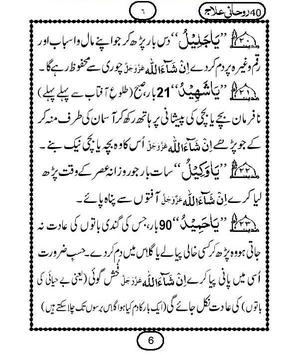 40 روحانی علاج
٦
"یَاجَلِیْلُ" دس بار پڑھ کر جو اپنے مال و اسباب اور
رقم وغیرہ پر دم کر دے اِنْ شَآءَ اللہ عَزَّوَجَلَّ چوری سے محفوظ رہے گا۔
"یَاشَھِیْدُ" 21 بار، صبح (طلوعِ آفتاب سے پہلے پہلے)
نافرمان بچے یا بچی کی پیشانی پر ہاتھ رکھ کر آسمان کی طرف منہ کر
کے جو پڑھے اِنْ شَآءَ اللہ عَزَّوَجَلَّ اُس کا وہ بچہ یا بچی نیک بنے۔
"یَاوَکِیْلُ" سات بار جو روزانہ عصر کے وقت پڑھ
لیا کرے اِنْ شَآءَ اللہ عَزَّوَجَلَّ آفتوں سے پناہ پائے۔
"یَاحَمِیْدُ" 90 بار، جس کی گندی باتوں کی عادت نہ
جاتی ہو وہ پڑھ کر کسی خالی پیالے یا گلاس میں دم کر دے۔ حسبِ ضرورت
اُسی میں پانی پیا کرے اِنْ شَآءَ اللہ عَزَّوَجَلَّ فحش گوئی (یعنی بے حیائی کی
باتوں) کی عادت نکل جائے گی (ایک بار کا دم کیا ہوا گلاس برسوں تک چلا سکتے ہیں)
6